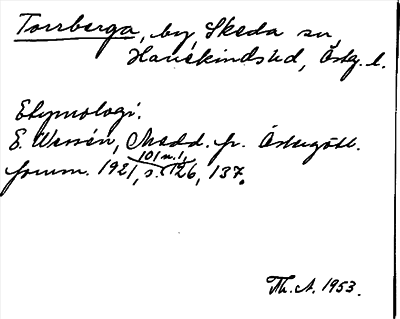 Torrberga, by, Skeda sn,
Hanekinds hd, Östg. l.
Etymologi.
E. Wessén, Medd. fr. Östergötl.
101 n. 1,
fornm. 1921, s. 126, 137.
Th. A. 1953.